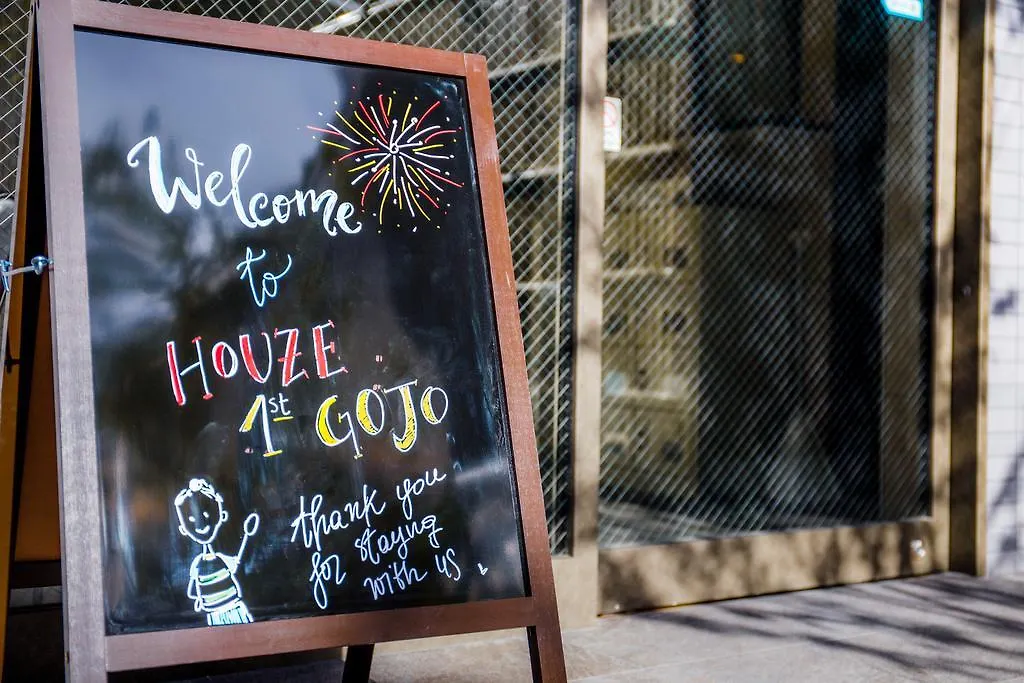 Welcome
to
HOUZE
1st GOJO
thank you
for staying
with us.